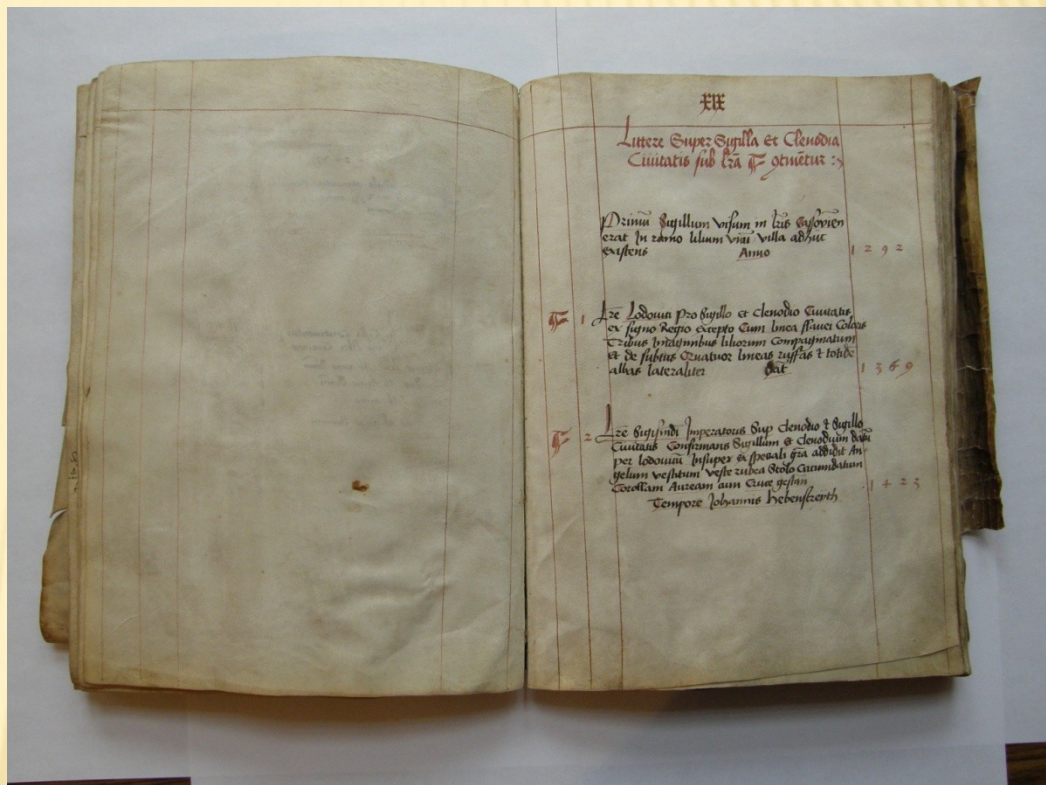 XIX
Littere Super Sigilla Et Clenodia
Civitatis sub lr̄a gͦtinētur :
Primū Sigillum visum in lr̄is Cassovien̄
erat In ramo lilium villa adhuc
existens Anno 1292
1 Lr̄e Lodovici Pro Sigillo et Clenodio Civitatis
ex signo Regio excepto Cum linea flavei Coloris
Tribus Imaginibus liliorum Compaginatum
et de subtus Quatuor lineas ruffas & totidē
albas lateraliter Dat̄ 1369
2 Lr̄e Sigismūdi Imperatoris Sup Clenodio & Sigillo
Civitatis Confirmans Sigillum & Clenodium
per lodovicū Insuper Ex speciali gr̄a addidit An-
gelum vestitum veste rubea Stolo Circumdatum
Corollam Auream cum Cruce 1423
Tempore Johannis Hebenstreyth